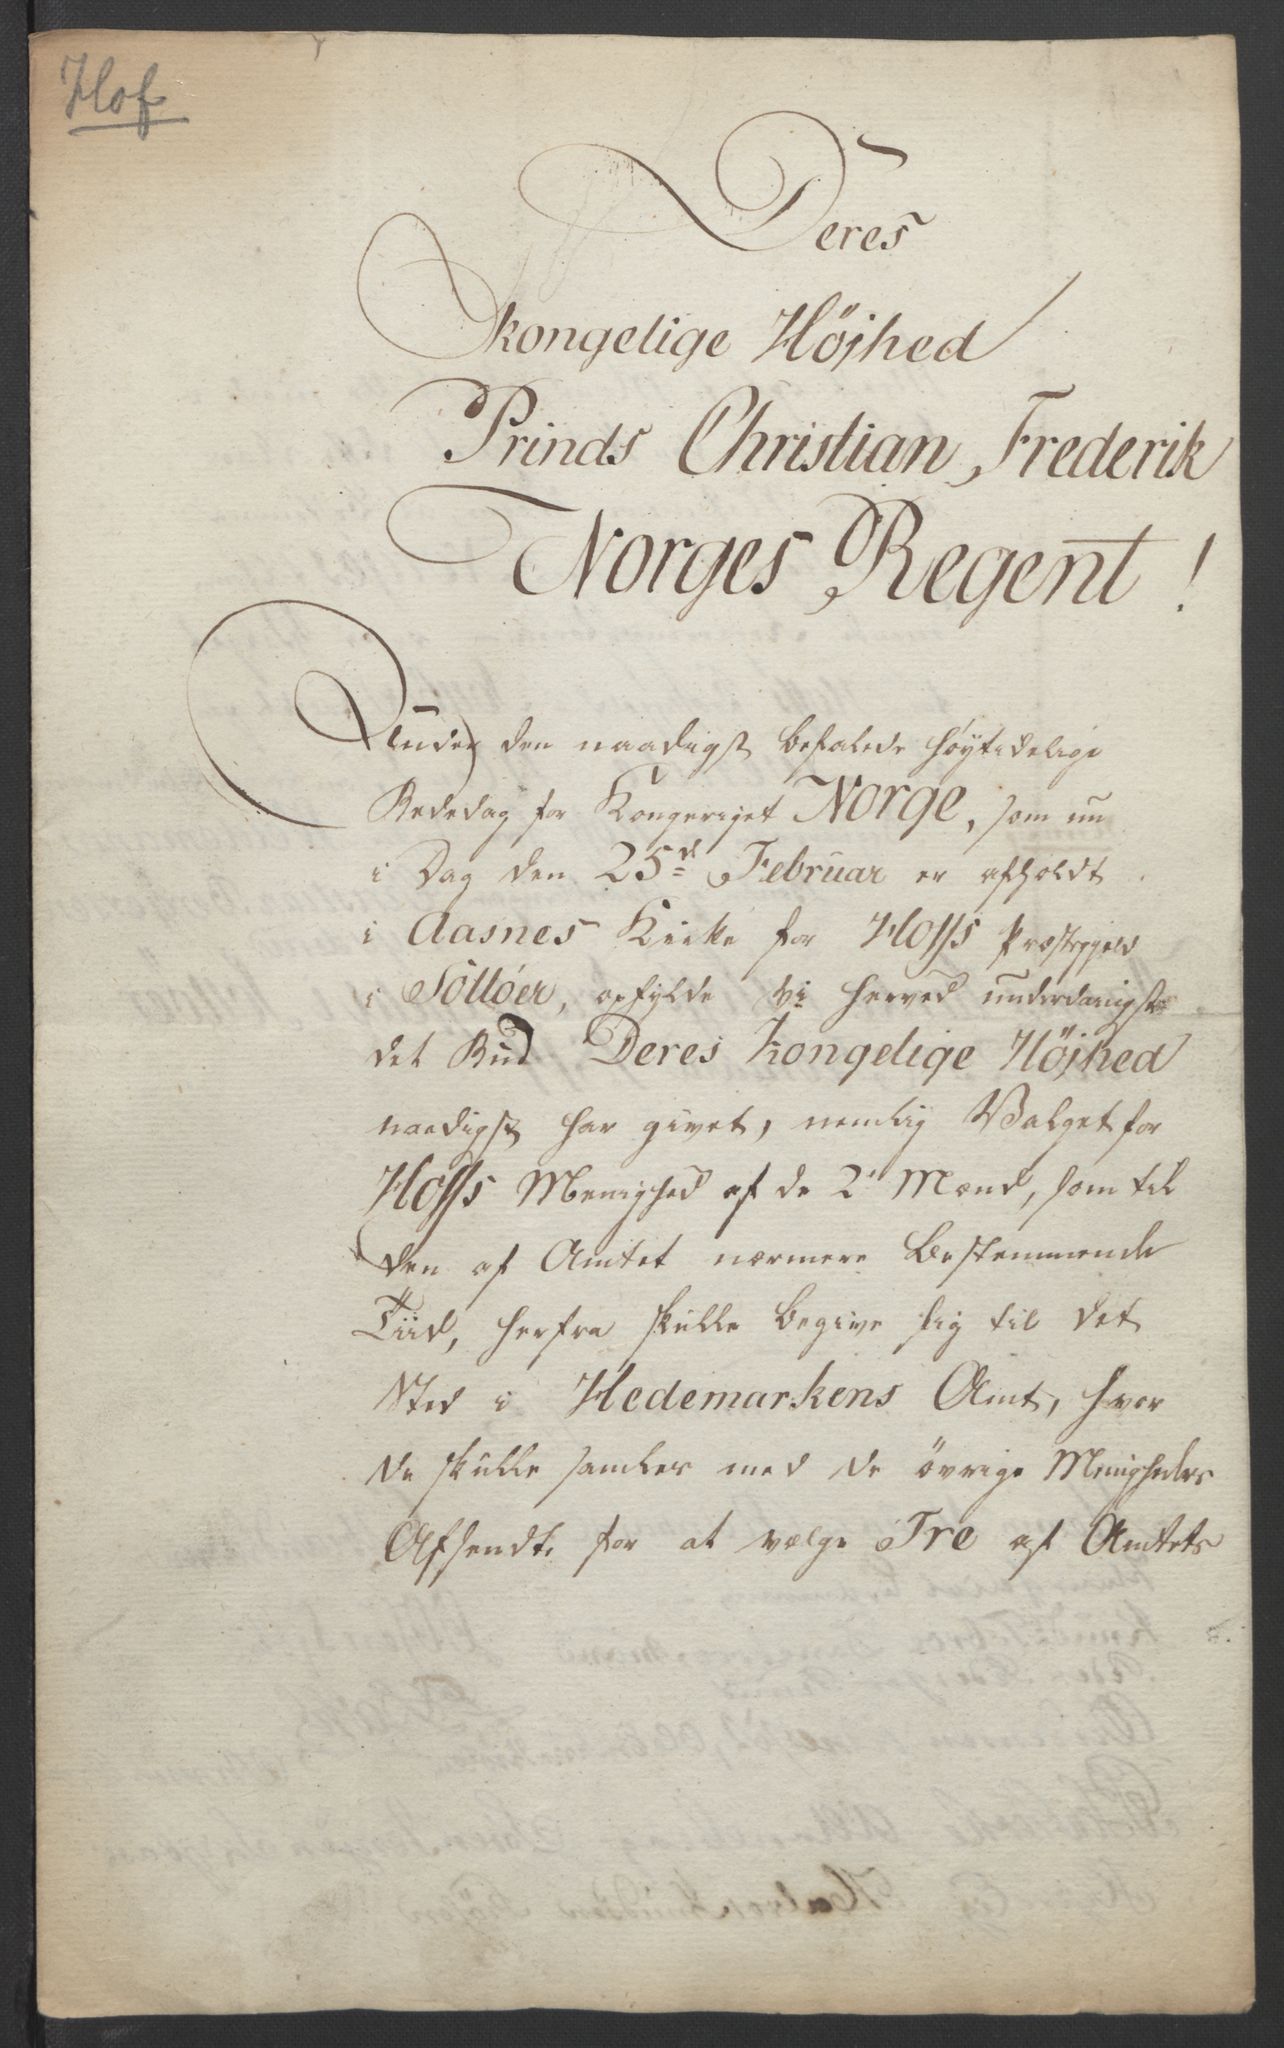 Hof
Deres
kongelige Höjhed
Prinds Christian Frederik
Norges Regent!
Under den naadigst befalede höytidelige
Bededag for Kongeriget Norge, som nu
i Dag den 25d Februar er afholdt
i Aasnes Kirke for Hoffs Præstegjeld
i Solløer, opfylde vi herved underdanigst
det Bud Deres Kongelige Höjhed
naadigst har givet, nemlig Valget for
Hoffs Menighed af de 2 Mænd, som til
den af Amtet nærmere bestemmende
Tiid, herfra skulle begive sig til det
Sted i Hedemarkens Amt, hvor
de skulle samles med de övrige Menigheders
Afsendte for at vælge Tre af Amtets